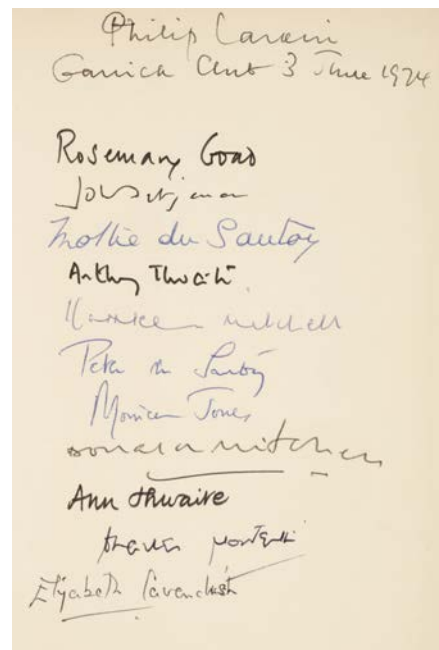 Philip Larkin
Garrick Club 3 June 1974
Rosemary Goad
John Betjeman
Mollie du Sautoy
Anthony Thwaite
Mitchell
Peter du Sautoy
Monica Jones
Donald Mitchell
Ann Thwaite
Charles Monteith
Elizabeth Cavendish